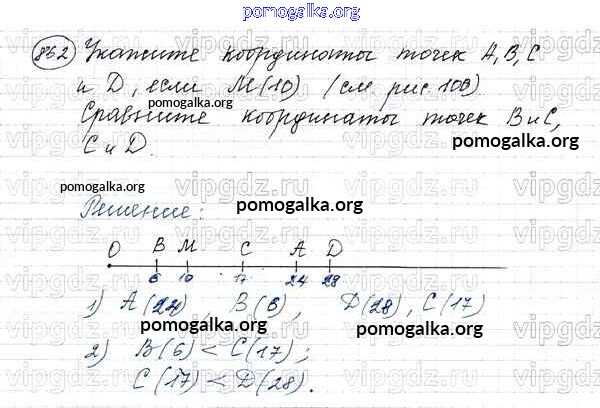 pomogalka.org
862 Укажите координаты точек A, B, C
и D, если M(10) (см. рис. 109).
pomogalka.org
Сравните координаты точек B и C,
pomogalka.org
C и D.
vipgdz.ru
pomogalka.org
Решение:
pomogalka.org
O B M C A D
6 10 17 24 28
1) A(24), B(6), D(28), C(17)
pomogalka.org pomogalka.org
2) B(6) < C(17);
C(17) < D(28).
pomogalka.org
vipgdz.ru